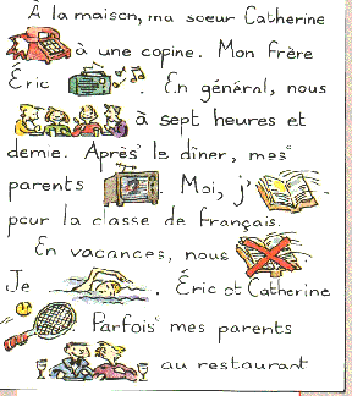 À la maison, ma soeur Catherine
à une copine. Mon frère
Éric . En général, nous
à sept heures et
demie. Après le dîner, mes
parents . Moi, j'.
pour la classe de français.
En vacances, nous .
Je . Éric et Catherine
. Parfois mes parents
au restaurant